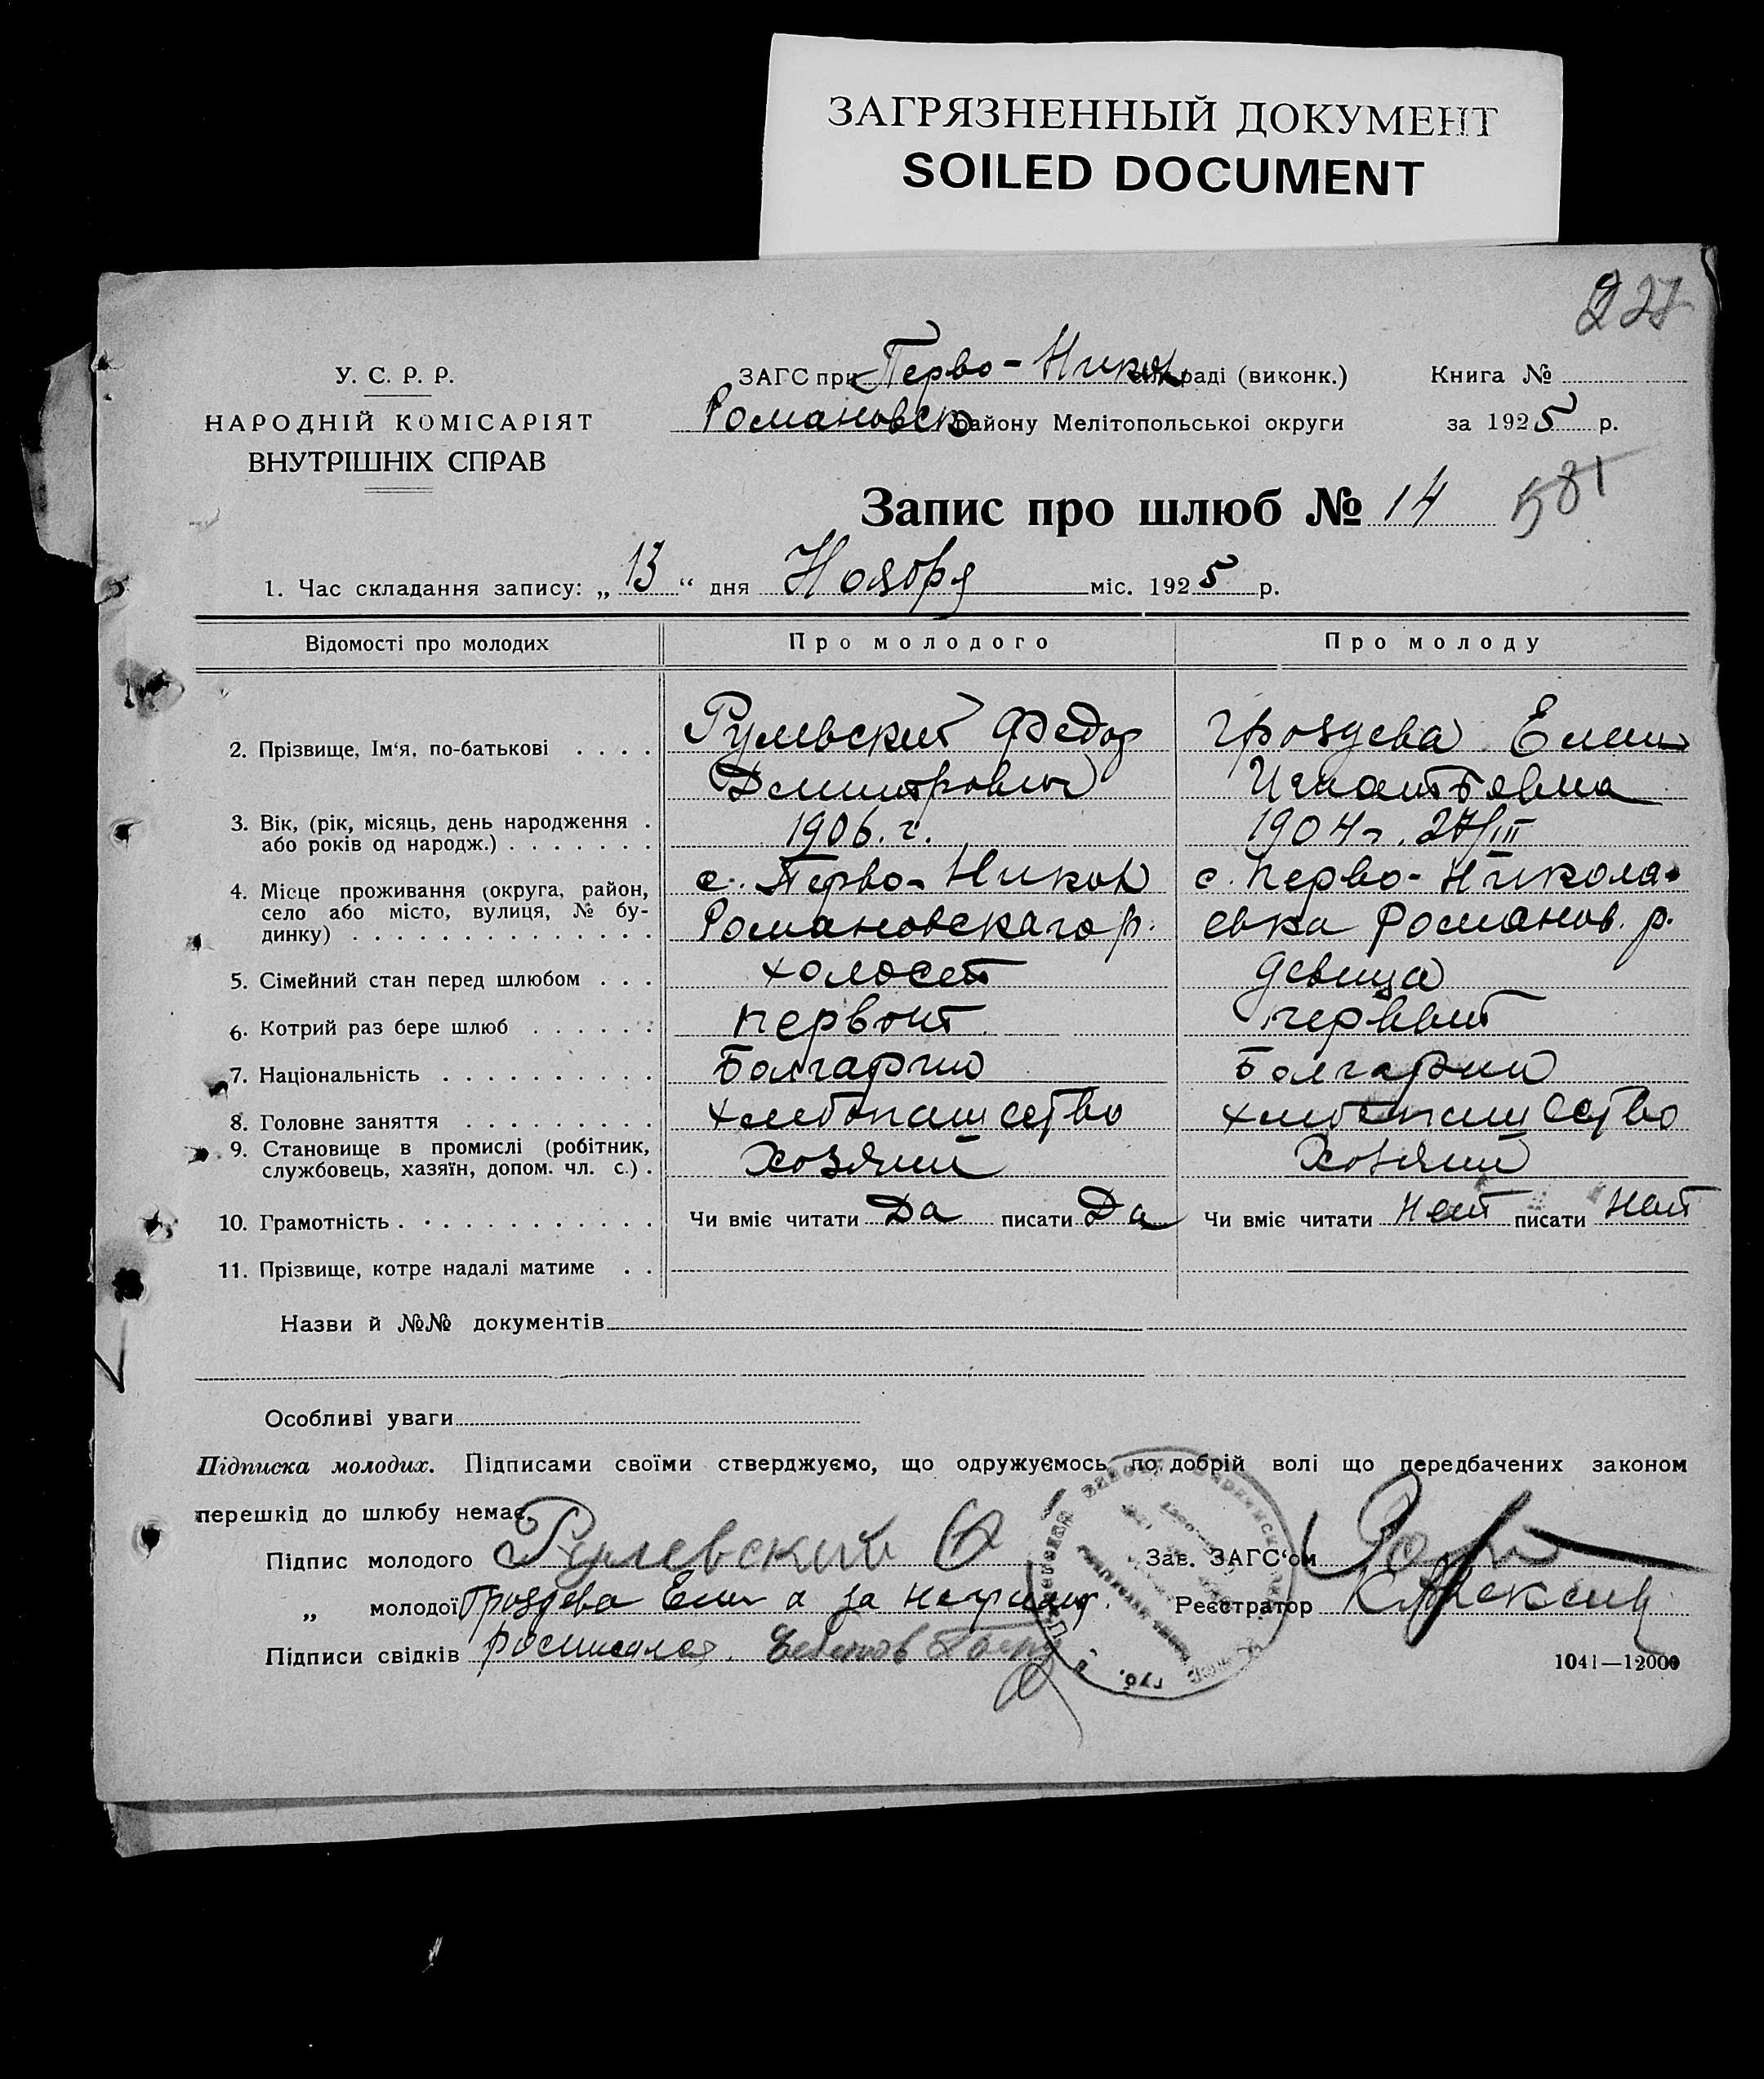 ЗАГРЯЗНЕННЫЙ ДОКУМЕНТ
SOILED DOCUMENT
227
У. С. Р. Р.
НАРОДНІЙ КОМІСАРІЯТ
ВНУТРІШНІХ СПРАВ
ЗАГС при Перво-Никол раді (виконк.)
Романовск району Мелітопольської округи
Книга №
за 1925 р.
Запис про шлюб № 14 581
1. Час складання запису: „ 13 “ дня Ноября міс. 1925 р.
Відомості про молодих Про молодого Про молоду
2. Прізвище, Ім‘я, по-батькові . . . . Рулевский Федор Гроздева Елена
Дмитрович Игнатьевна
3. Вік, (рік, місяць, день народження . або років од народж.) . . . . . . . 1906. г. 1904 г. 27/III
4. Місце проживання (округа, район, с. Перво-Никол с. Перво-Никола-
село або місто, вулиця, № бу- Романовскаго р. евка Романов. р.
динку) . . . . . . . . . . . . . .
5. Сімейний стан перед шлюбом . . . холост девица
6. Котрий раз бере шлюб . . . . . . первый первый
7. Національність . . . . . . . . . . Болгарин Болгарин
8. Головне заняття . . . . . . . . . хлебопашество хлебопашество
9. Становище в промислі (робітник,
службовець, хазяїн, допом. чл. с.) . Хозяин Хозяин
10. Грамотність . . . . . . . . . . . . Чи вміє читати Да писати Да Чи вміє читати Нет писати Нет
11. Прізвище, котре надалі матиме . .
Назви й №№ документів
Особливі уваги
Підписка молодих. Підписами своїми стверджуємо, що одружуємось по добрій волі що передбачених законом
перешкід до шлюбу немає.
Підпис молодого Рулевский Зав. ЗАГС‘ом
„ молодої Гроздева Елен а за неграмот. Реєстратор
Підписи свідків росписался
1041—12000